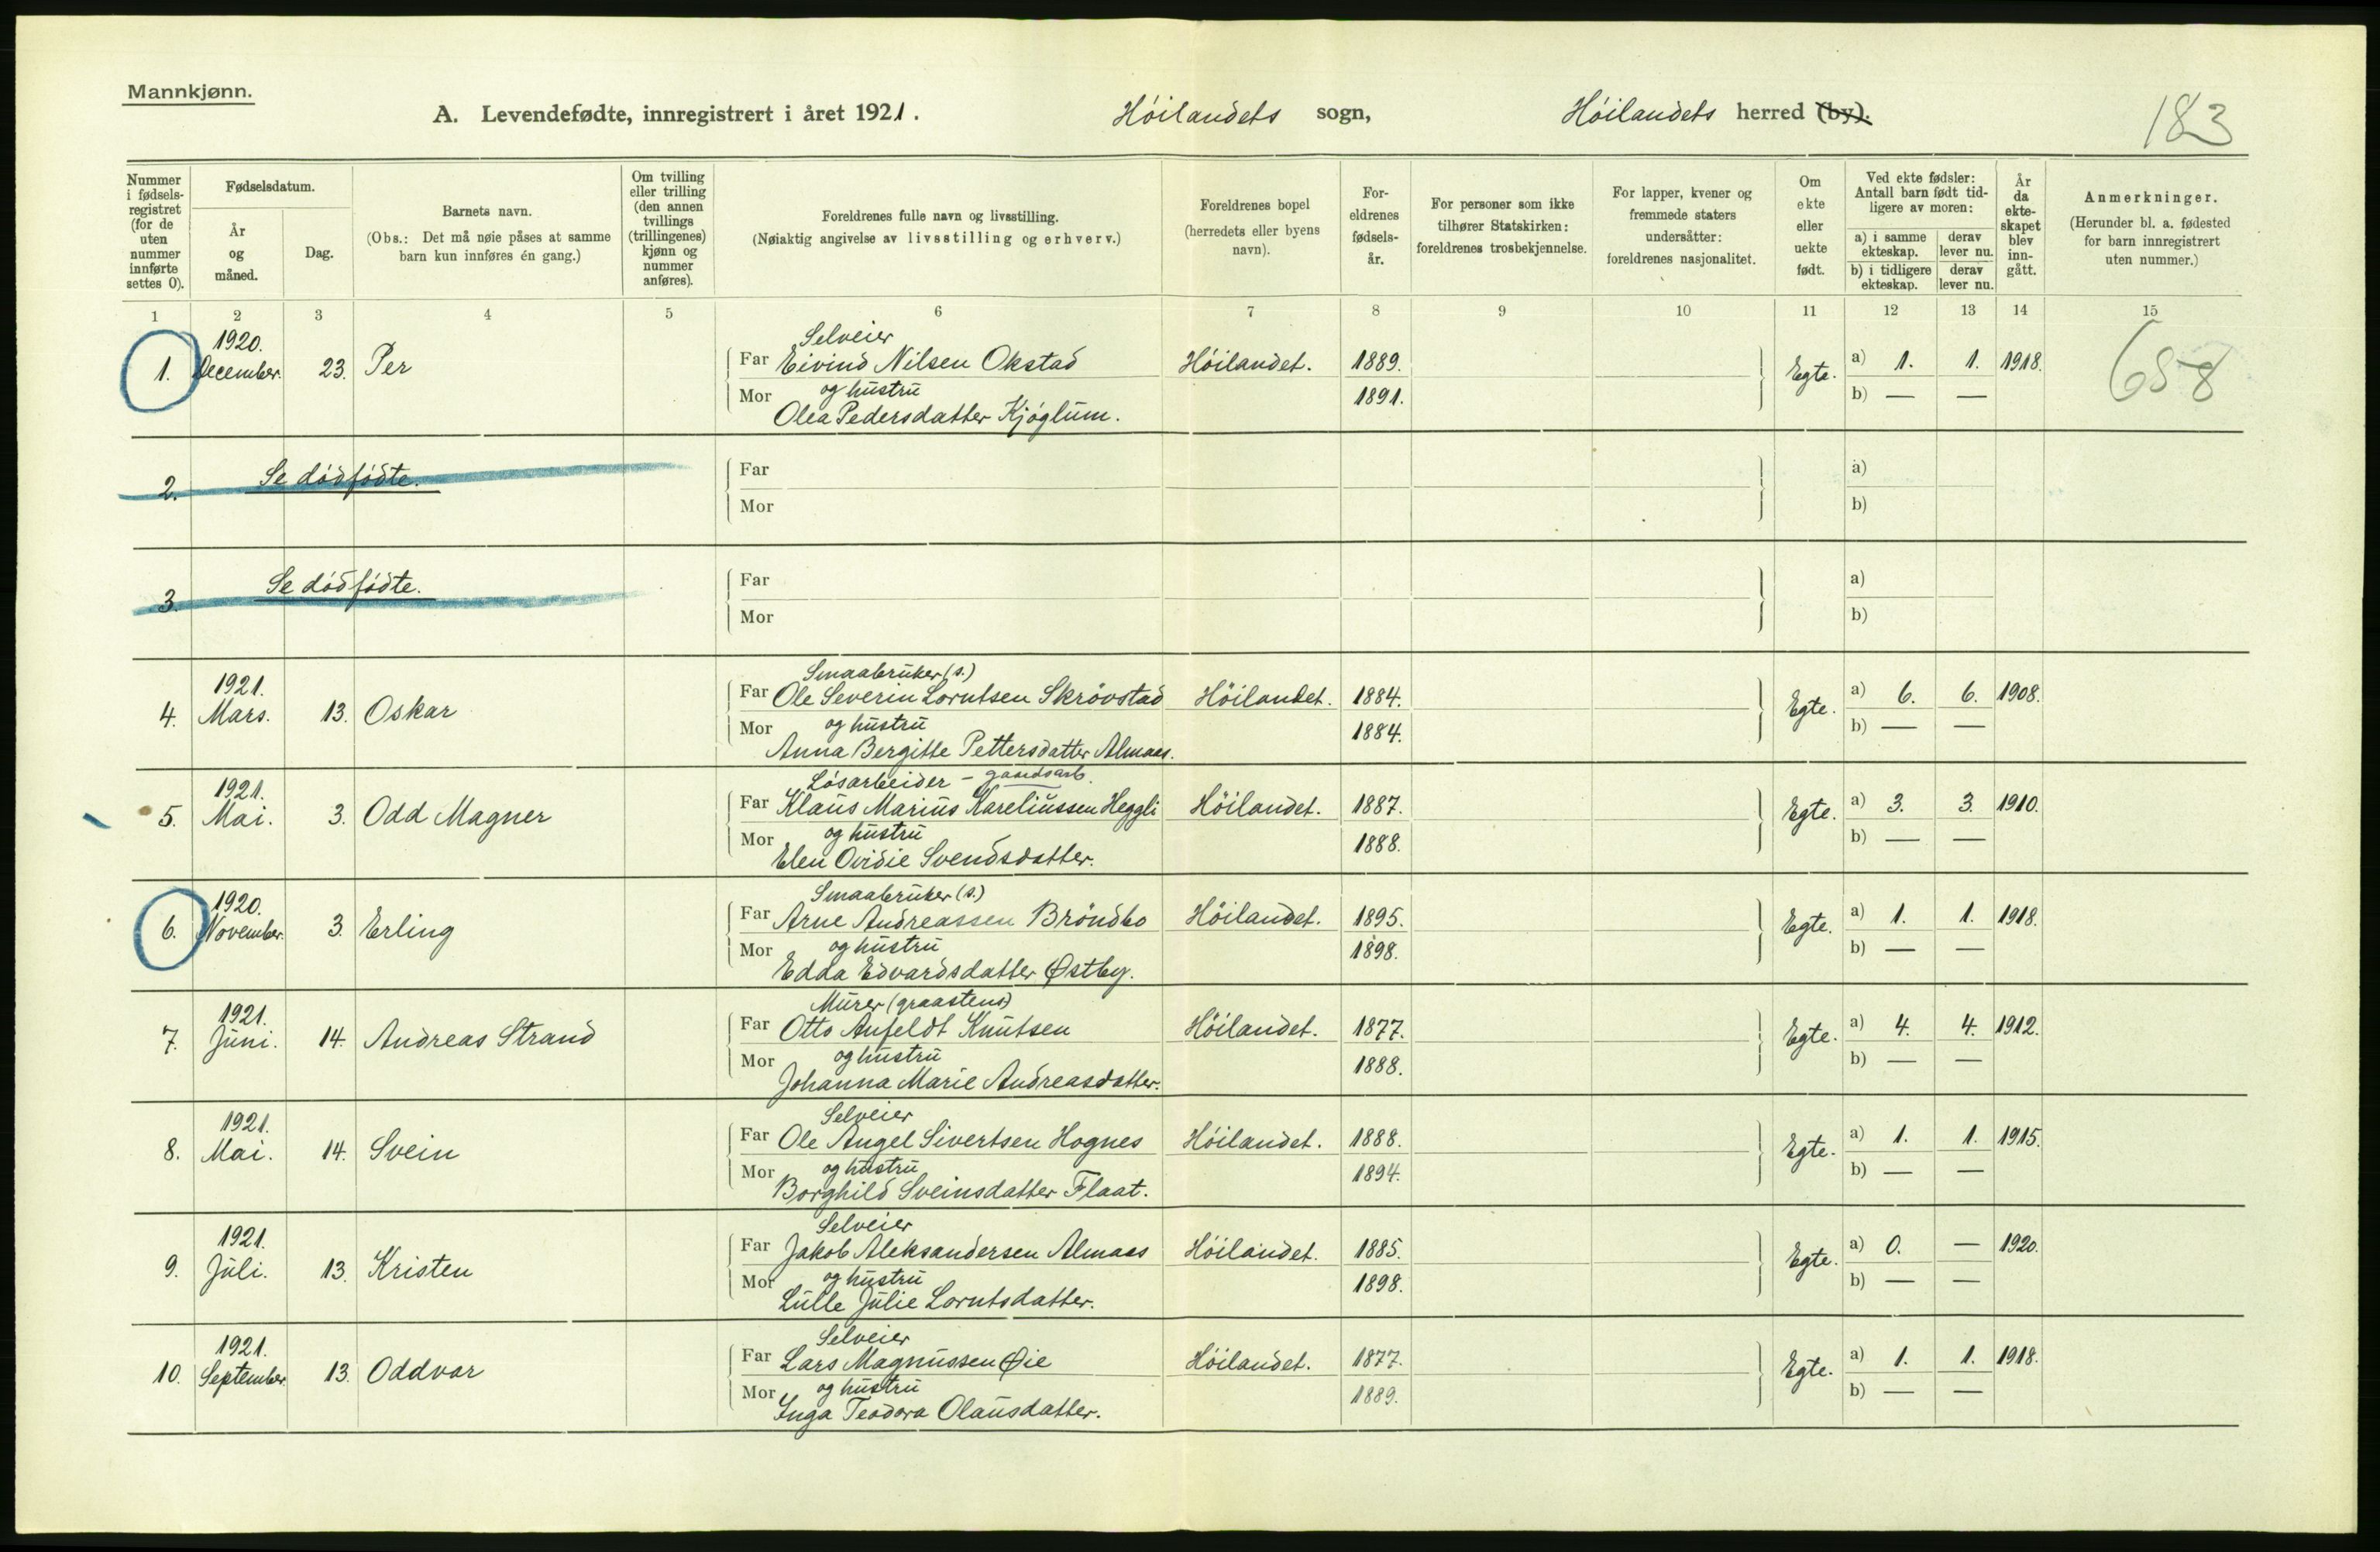 Mannkjønn.
A. Levendefødte, innregistrert i året 1921. Höilandets sogn, Höilandets herred (by).
183
Nummer i fødsels-registret (for de uten nummer innførte settes 0).
Fødselsdatum.
År og måned.
Dag.
Barnets navn.
(Obs.: Det må nøie påses at samme barn kun innføres én gang.)
Om tvilling eller trilling (den annen tvillings (trillingenes) kjønn og nummer anføres).
Foreldrenes fulle navn og livsstilling.
(Nøiaktig angivelse av livsstilling og erhverv.)
Foreldrenes bopel (herredets eller byens navn).
For-eldrenes fødsels-år.
For personer som ikke tilhører Statskirken: foreldrenes trosbekjennelse.
For lapper, kvener og fremmede staters undersåtter: foreldrenes nasjonalitet.
Om ekte eller uekte født.
Ved ekte fødsler: Antall barn født tid-ligere av moren:
a) i samme ekteskap. derav lever nu.
b) i tidligere ekteskap. derav lever nu.
År da ekte-skapet blev inn-gått.
Anmerkninger.
(Herunder bl. a. fødested for barn innregistrert uten nummer.)
1 2 3 4 5 6 7 8 9 10 11 12 13 14 15
1920. Selveier
1. December. 23. Per Far Eivind Nilsen Okstad Höilandet. 1889. Egte. a) 1. 1. 1918. 658
Mor og hustru 1891. b) — —
Olea Pedersdatter Kjøglum.
2. Se dödfödte. Far a)
Mor b)
3. Se dödfödte. Far a)
Mor b)
1921. Smaabruker (s.)
4. Mars. 13. Oskar Far Ole Severin Lorntsen Skrövstad Höilandet. 1884. Egte. a) 6. 6. 1908.
Mor og hustru 1884. b) — —
Anna Bergitte Pettersdatter Almaas.
1921. Lösarbeider – gaardsarb.
5. Mai. 3. Odd Magner Far Klaus Marius Kareliussen Heggli Höilandet. 1887. Egte. a) 3. 3. 1910.
Mor og hustru 1888. b) — —
Elen Ovidie Svendsdatter.
1920. Smaabruker (s.)
6. November. 3. Erling Far Arne Andreassen Bröndbo Höilandet. 1895. Egte. a) 1. 1. 1918.
Mor og hustru 1898. b) — —
Edda Edvardsdatter Østby.
1921. Murer (graastens)
7. Juni. 14. Andreas Strand Far Otto Anfeldt Knutsen Höilandet. 1877. Egte. a) 4. 4. 1912.
Mor og hustru 1888. b) — —
Johanna Marie Andreasdatter.
1921. Selveier
8. Mai. 14. Svein Far Ole Angel Sivertsen Hognes Höilandet. 1888. Egte. a) 1. 1. 1915.
Mor og hustru 1894. b) — —
Borghild Sveinsdatter Flaat.
1921. Selveier
9. Juli. 13. Kristen Far Jakob Aleksandersen Almaas Höilandet. 1885. Egte. a) 0. — 1920.
Mor og hustru 1898. b) — —
Lulle Julie Lorntsdatter.
1921. Selveier
10. September. 13. Oddvar Far Lars Magnussen Øie Höilandet. 1877. Egte. a) 1. 1. 1918.
Mor og hustru 1889. b) — —
Inga Teodora Olausdatter.